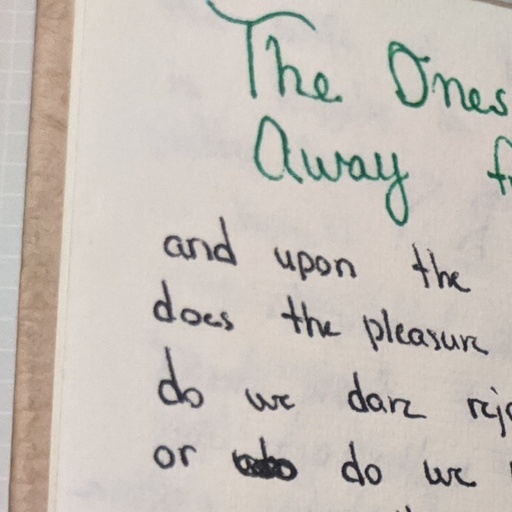 The Ones
Away
and upon the
does the pleasure
do we dare
or do we